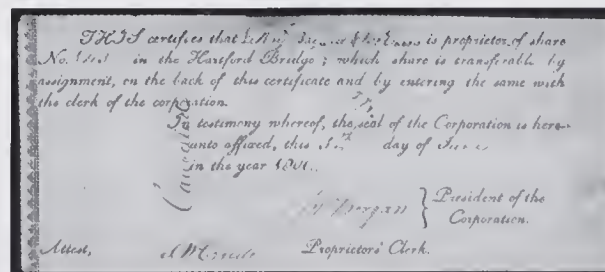 THIS certifies that is proprietor of share
No. in the Hartford Bridge; which share is transferable by
assignment, on the back of this certificate and by entering the same with
the clerk of the corporation.
In testimony whereof, the seal of the Corporation is here-
unto affixed, this day of
in the year
Morgan } President of the
Corporation.
Attest, Proprietors' Clerk.